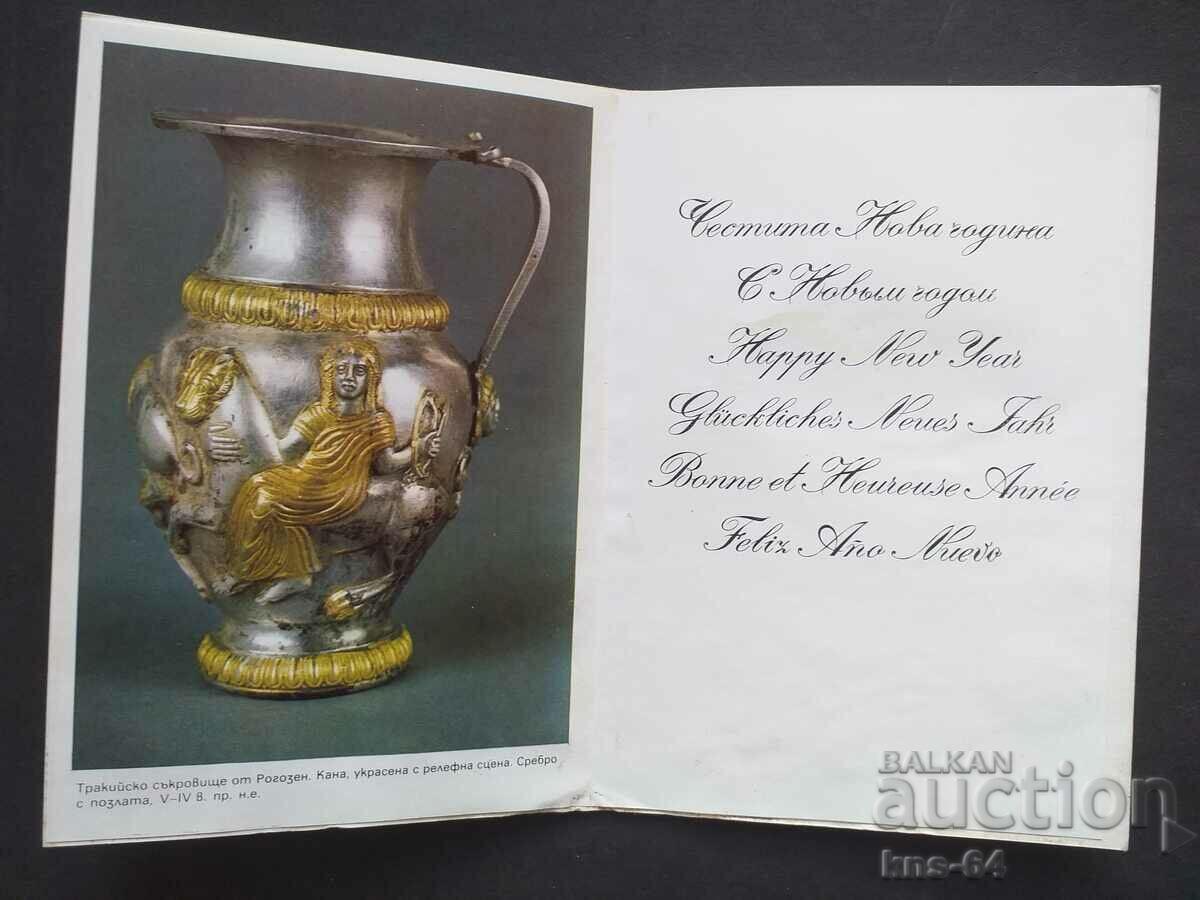 Тракийско съкровище от Рогозен. Кана, украсена с релефна сцена. Сребро
с позлата, V–IV в. пр. н.е.
Честита Нова година
С Новым годом
Happy New Year
Glückliches Neues Jahr
Bonne et Heureuse Année
Feliz Año Nuevo
BALKAN
auction
kns-64